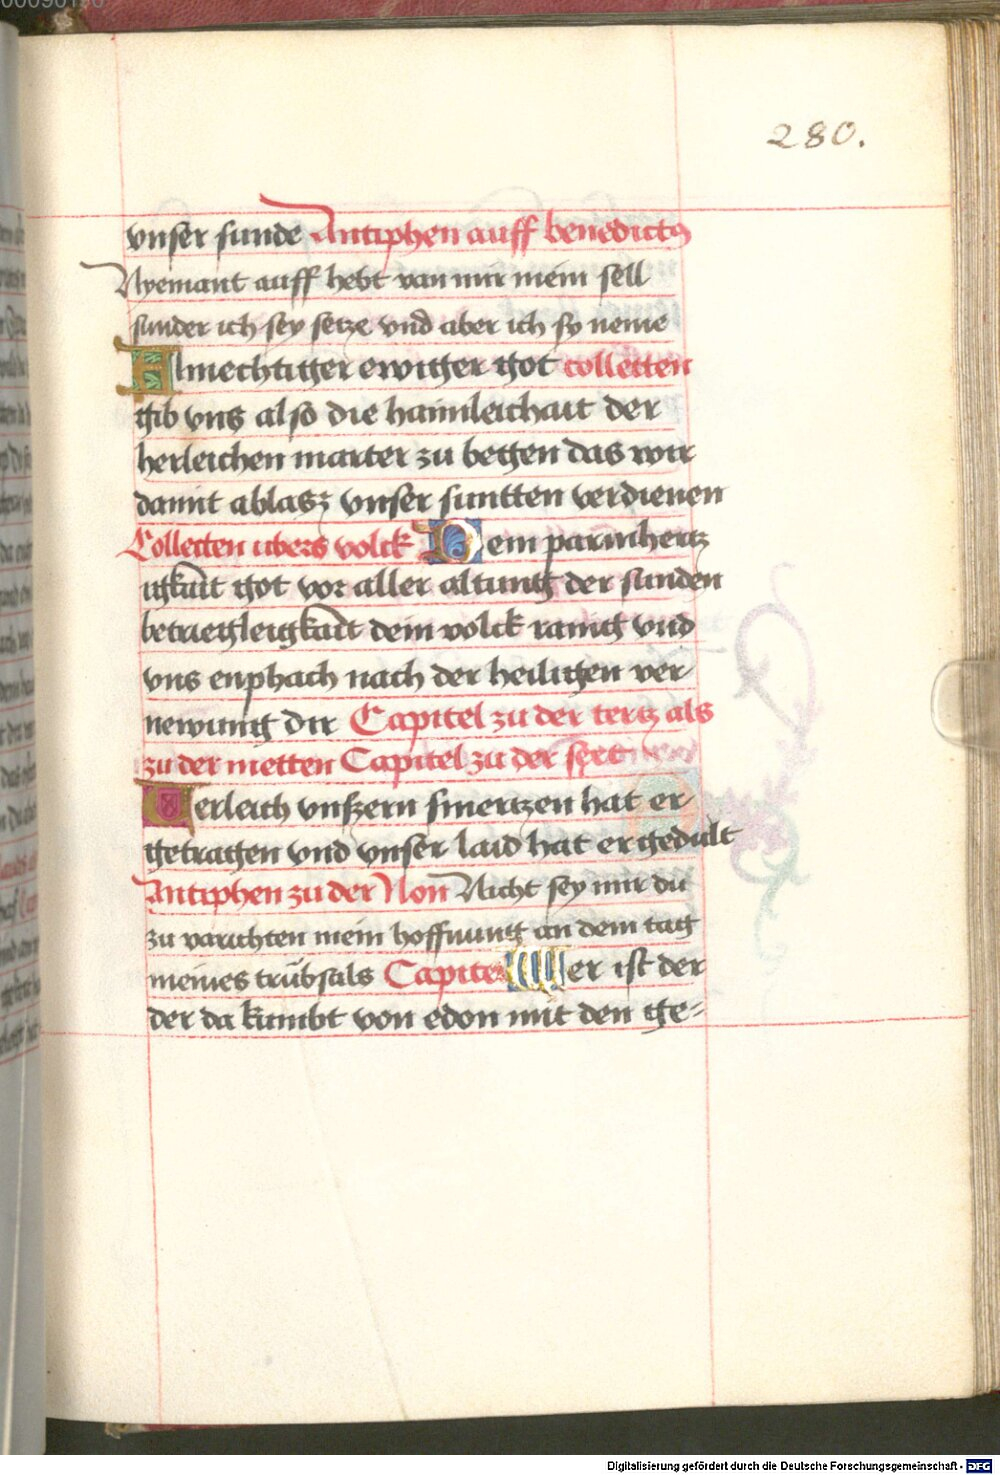 280.
vnser sunde Antiphen auff benedictus
Nyemant auff hebt van mir mein sell
sunder ich sey setze vnd aber ich sy neme
Almechtiger ewiger got collecten
gib vns also die haimleichait der
herleichen marter zu begen das wir
damit ablasz vnser suntten verdienen
Collecten ubers volck Dem parmhertz
igkait got vor aller altung der sunden
betriegleigkait dein volck rainig vnd
vns enphach nach der heiligen ver-
newung dir Capitel zu der tertz als
zu der metten Capitel zu der sext
Verleich vnszern smertzen hat er
getragen vnd vnser laid hat er gedult
Antiphen zu der Non Nicht sey mir du
zu varichten mein hoffnung an dem tag
meines trübsals Capitel Wer ist der
der da kumbt von edon mit den ge-
Digitalisierung gefördert durch die Deutsche Forschungsgemeinschaft - DFG